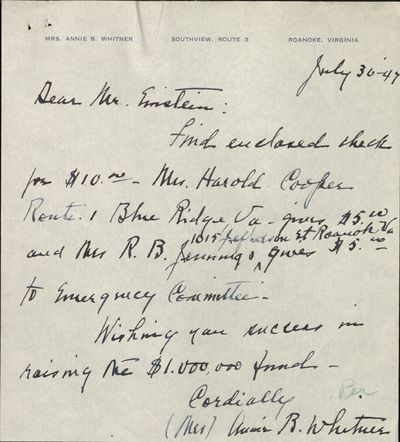 MRS. ANNIE B. WHITNER SOUTHVIEW, ROUTE 3 ROANOKE, VIRGINIA
July 30-47
Dear Mr. Einstein:
Find enclosed check
for $10.00 - Mrs. Harold Cooper
Route 1 Blue Ridge Va - gives $5.00
1015 Jefferson St Roanoke Va
and Mrs R. B. Jennings, gives $5.00
to Emergency Committee -
Wishing you success in
raising the $1.000,000 fund -
Cordially
(Mrs) Annie B. Whitner